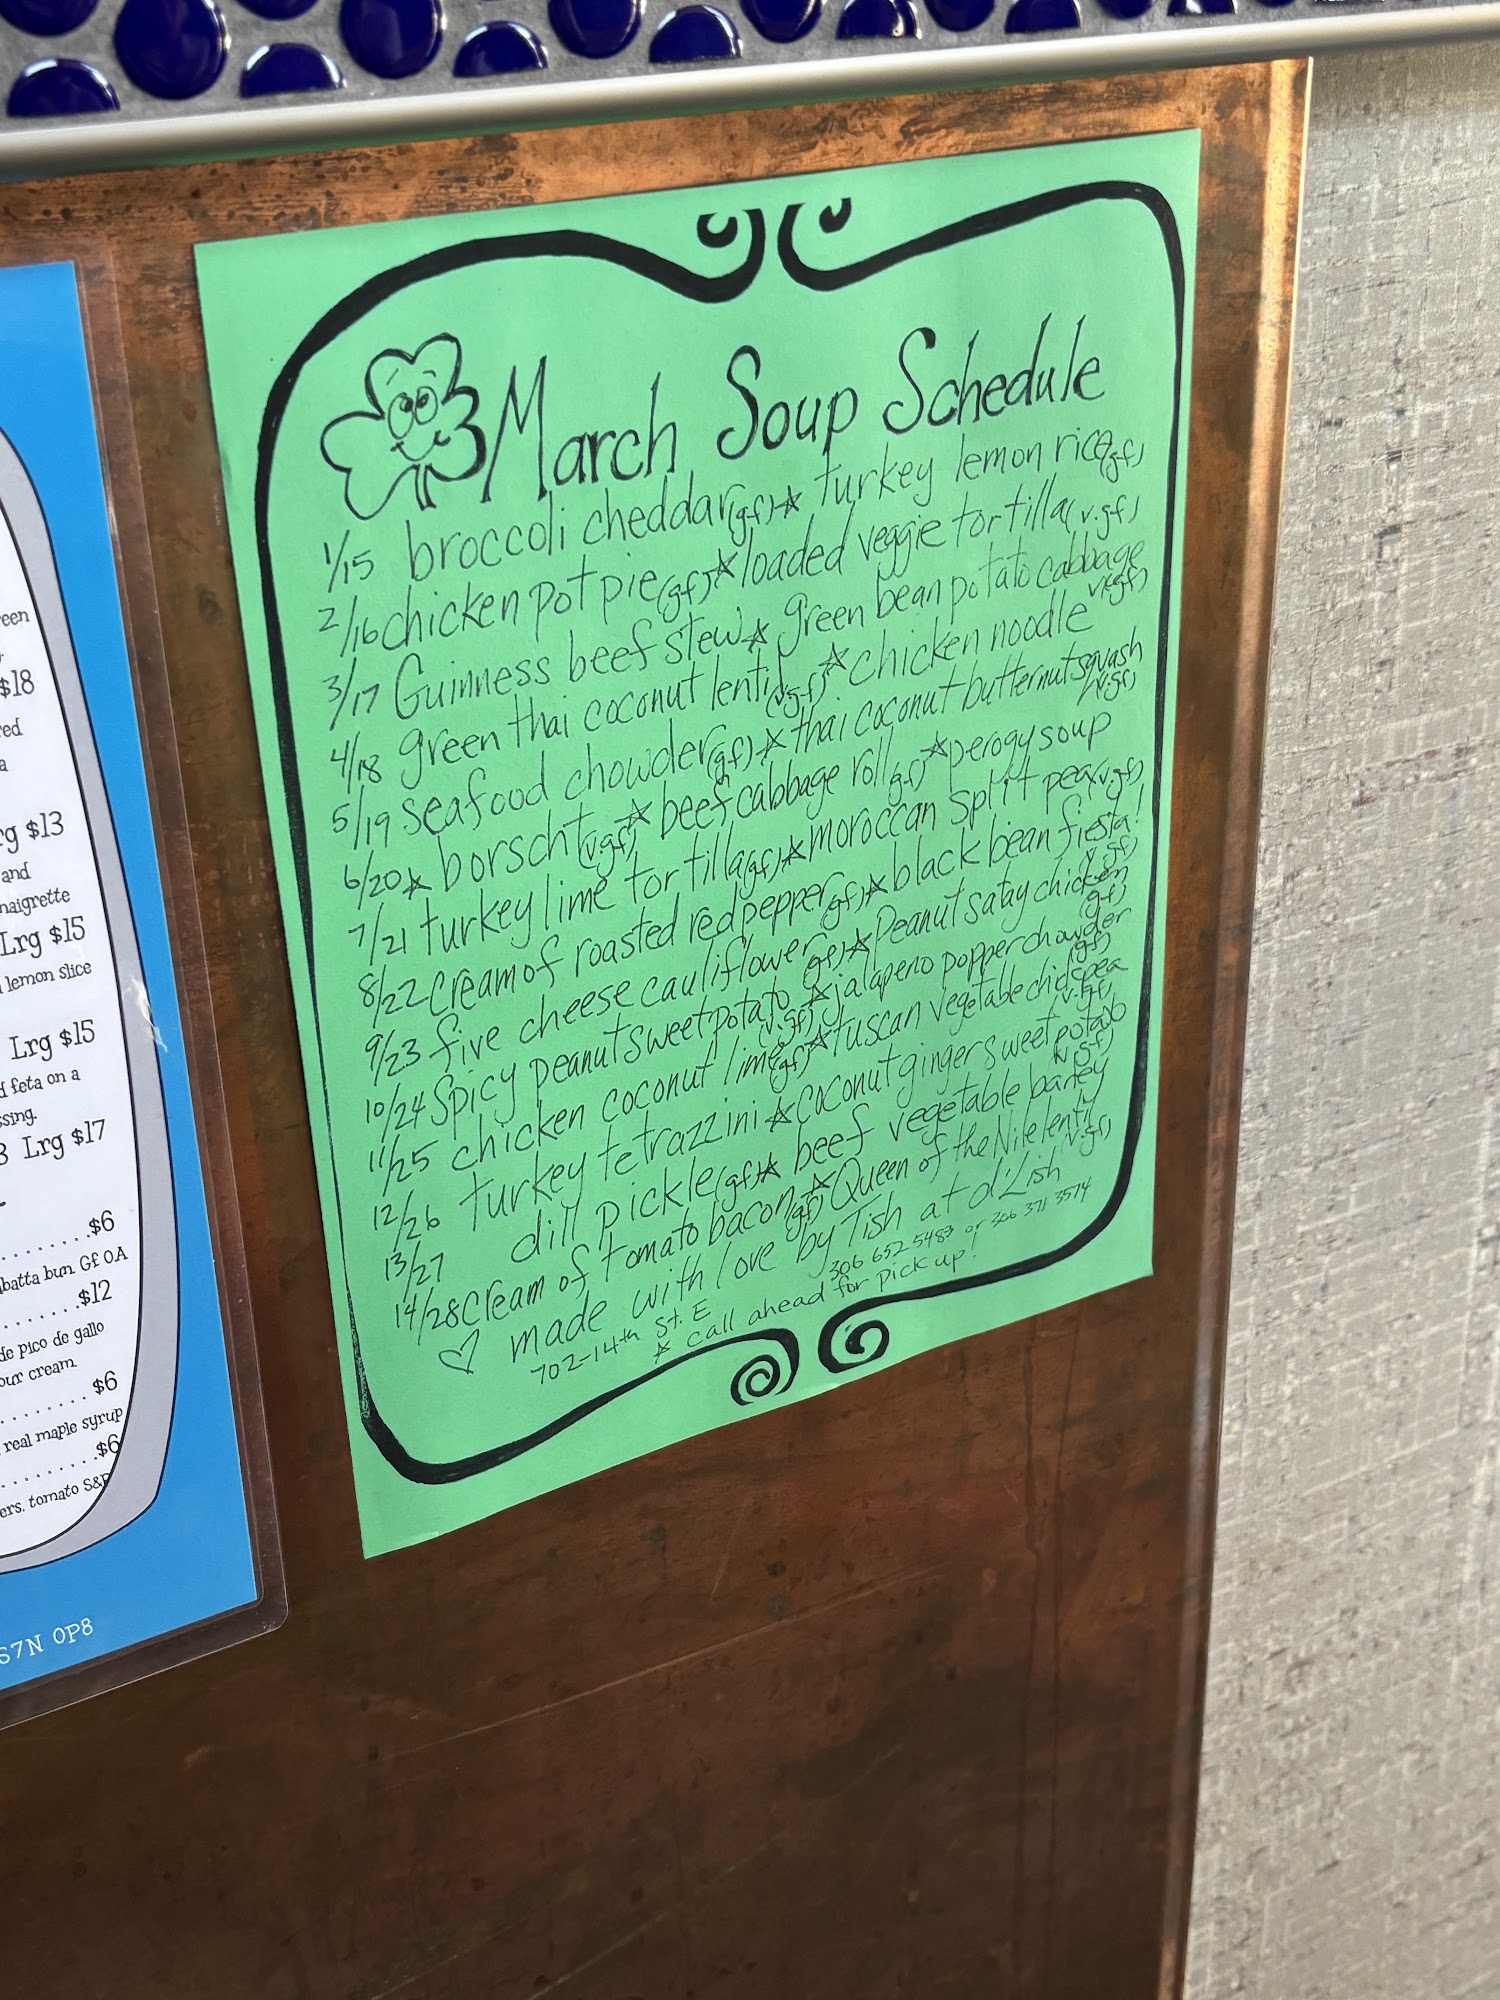 een
$18
red
a
rg $13
and
naigrette
Lrg $15
lemon slice
Lrg $15
d feta on a
ssing.
3 Lrg $17
$6
batta bun GF OA
$12
de pico de gallo
our cream.
$6
real maple syrup
$6
ers, tomato S&P
S7N 0P8
March Soup Schedule
1/15 broccoli cheddar (gf) ☆ turkey lemon rice (gf)
2/16 chicken pot pie (gf) ☆ loaded veggie tortilla (v.gf)
3/17 Guinness beef stew ☆ green bean potato cabbage v(gf)
4/18 green thai coconut lentil (v.gf) ☆ chicken noodle
5/19 seafood chowder (gf) ☆ thai coconut butternut squash (v.gf)
6/20 ☆ borscht (v.gf) ☆ beef cabbage roll gf) ☆ perogy soup
7/21 turkey lime tortilla (gf) ☆ moroccan split pea (v.gf)
8/22 cream of roasted red pepper (gf) ☆ black bean fiesta! v.gf)
9/23 five cheese cauliflower gf) ☆ Peanut satay chicken (gf)
10/24 Spicy peanut sweet potato (v.gf) ☆ jalapeno popper chowder (gf)
11/25 chicken coconut lime (gf) ☆ tuscan vegetable chickpea (v.gf)
12/26 turkey tetrazzini ☆ coconut ginger sweet potato v.gf)
13/27 dill pickle (gf) ☆ beef vegetable barley
14/28 cream of tomato bacon (gf) ☆ Queen of the Nile lentil (v.gf)
♡ made with love by Tish at d'Lish
702-14th St. E 306 652 5483 or 306 371 3574
☆ call ahead for pick up!